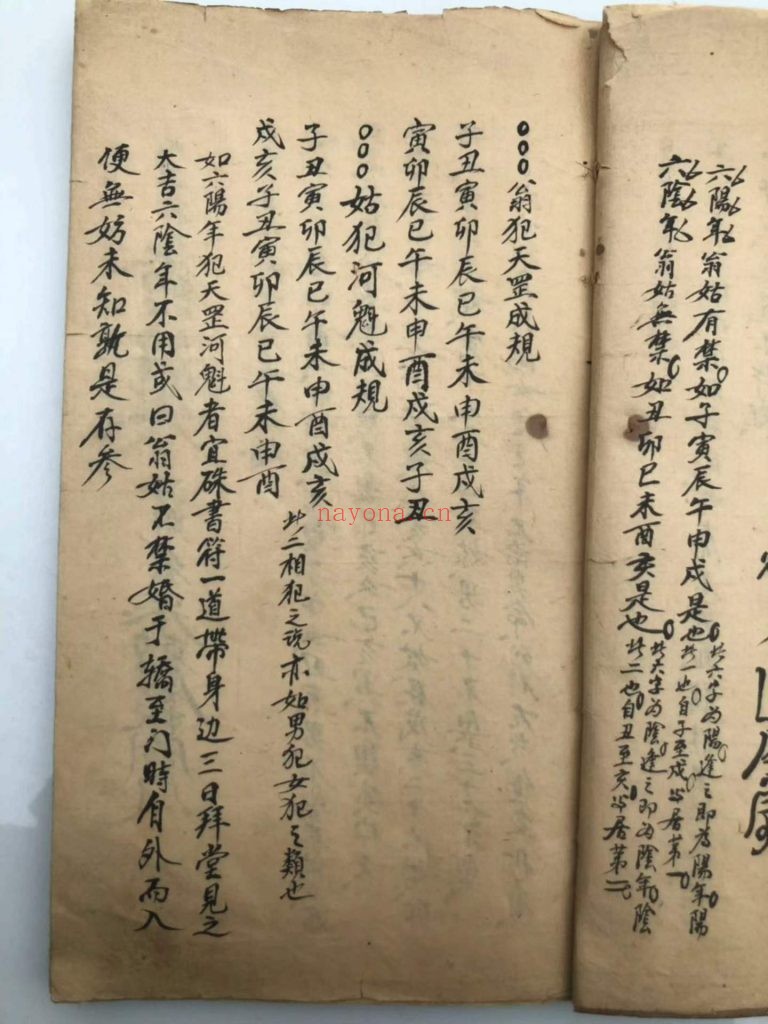 六陽年翁姑有禁如子寅辰午申戌是也
此六字為陽逢之即為陽年陽
此一也自子至戌皆居第一
六陰年翁姑無禁如丑卯巳未酉亥是也
此六字為陰逢之即為陰年陰
此二也自丑至亥皆居第二
翁犯天罡成規
子丑寅卯辰巳午未申酉戌亥
寅卯辰巳午未申酉戌亥子丑
姑犯河魁成規
子丑寅卯辰巳午未申酉戌亥
戌亥子丑寅卯辰巳午未申酉
此二相犯之说亦如男犯女犯之類也
如六陽年犯天罡河魁者宜硃書符一道帶身边三日拜堂見之
大吉六陰年不用或曰翁姑不禁婚于轎至门時自外而入
便無妨未知孰是存參
nayona.cn